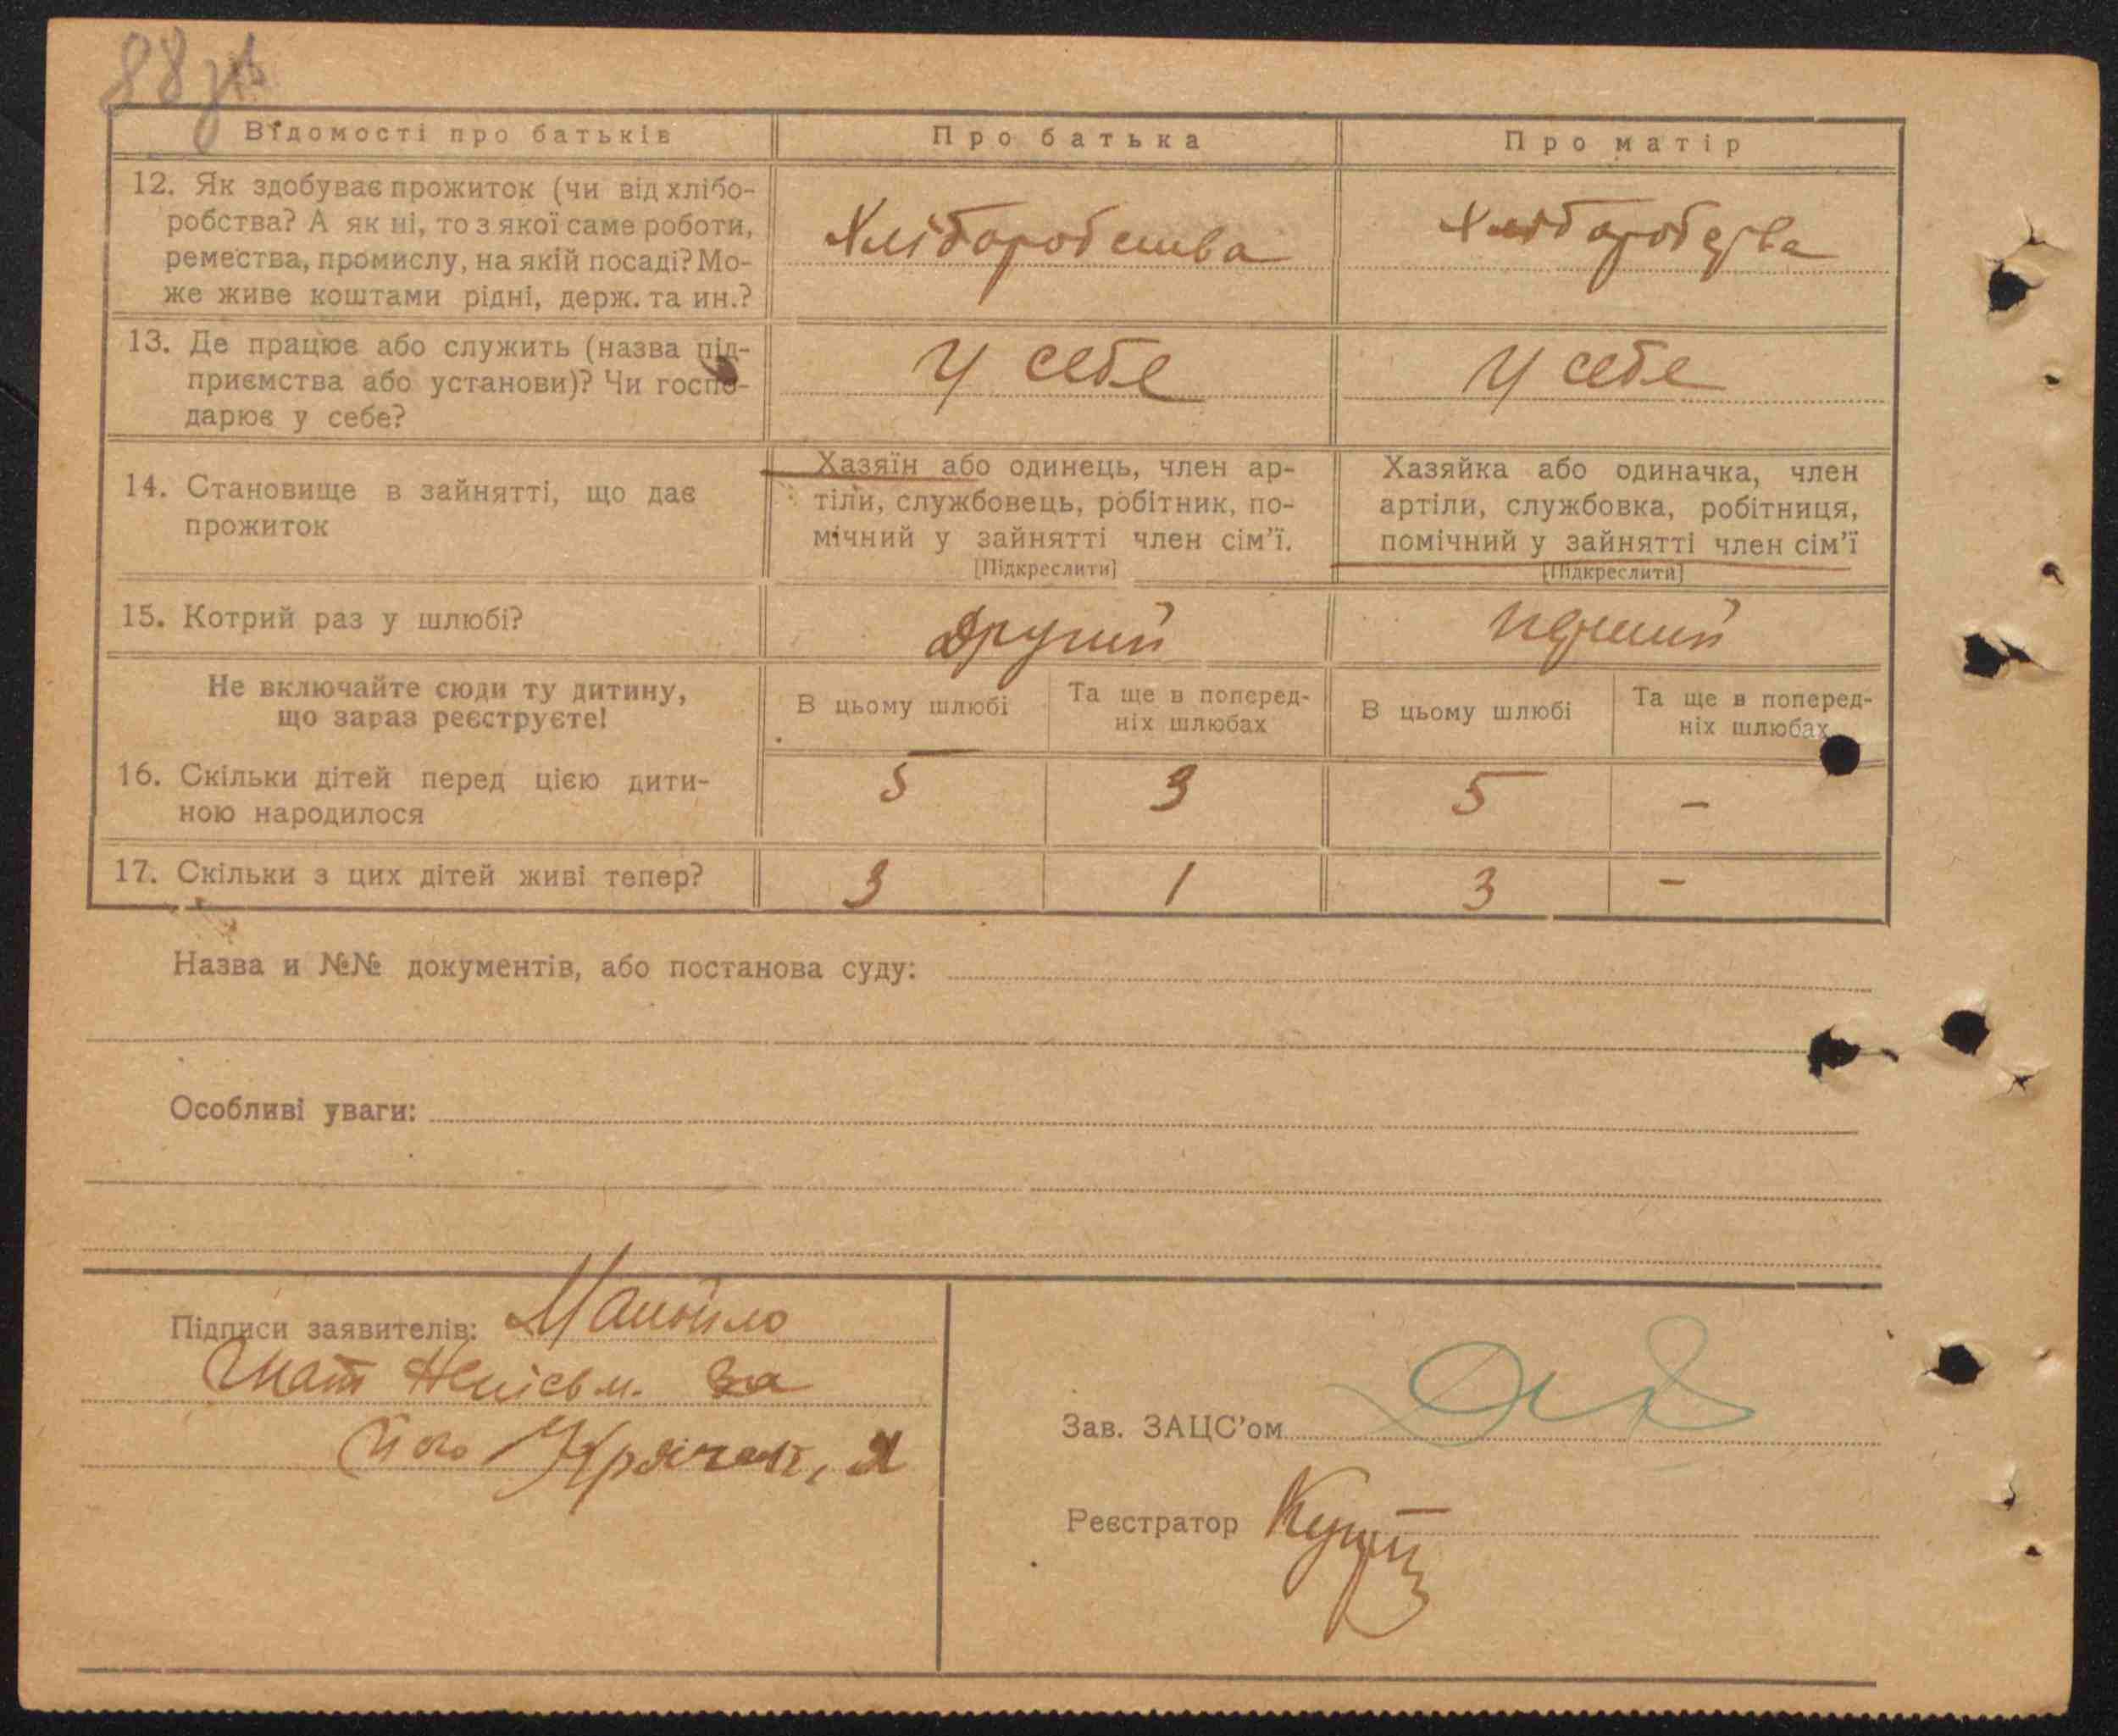 88 зв
Відомості про батьків
Про батька
Про матір
12. Як здобуває прожиток (чи від хлібо-
робства? А як ні, то з якої саме роботи,
ремества, промислу, на якій посаді? Мо-
же живе коштами рідні, держ. та ин.?
Хліборобства
Хліборобства
13. Де працює або служить (назва під-
приємства або установи)? Чи госпо-
дарює у себе?
У себе
У себе
14. Становище в зайнятті, що дає
прожиток
Хазяїн або одинець, член ар-
тіли, службовець, робітник, по-
мічний у зайнятті член сім'ї.
[Підкреслити]
Хазяйка або одиначка, член
артіли, службовка, робітниця,
помічний у зайнятті член сім'ї
[Підкреслити]
15. Котрий раз у шлюбі?
Другий
перший
Не включайте сюди ту дитину,
що зараз реєструєте!
В цьому шлюбі
Та ще в поперед-
ніх шлюбах
В цьому шлюбі
Та ще в поперед-
ніх шлюбах
16. Скільки дітей перед цією дити-
ною народилося
5
3
5
–
17. Скільки з цих дітей живі тепер?
3
1
3
–
Назва и №№ документів, або постанова суду:
Особливі уваги:
Підписи заявителів: Манойло
Гнат Неписьм. За
його
Зав. ЗАЦС'ом
Реєстратор